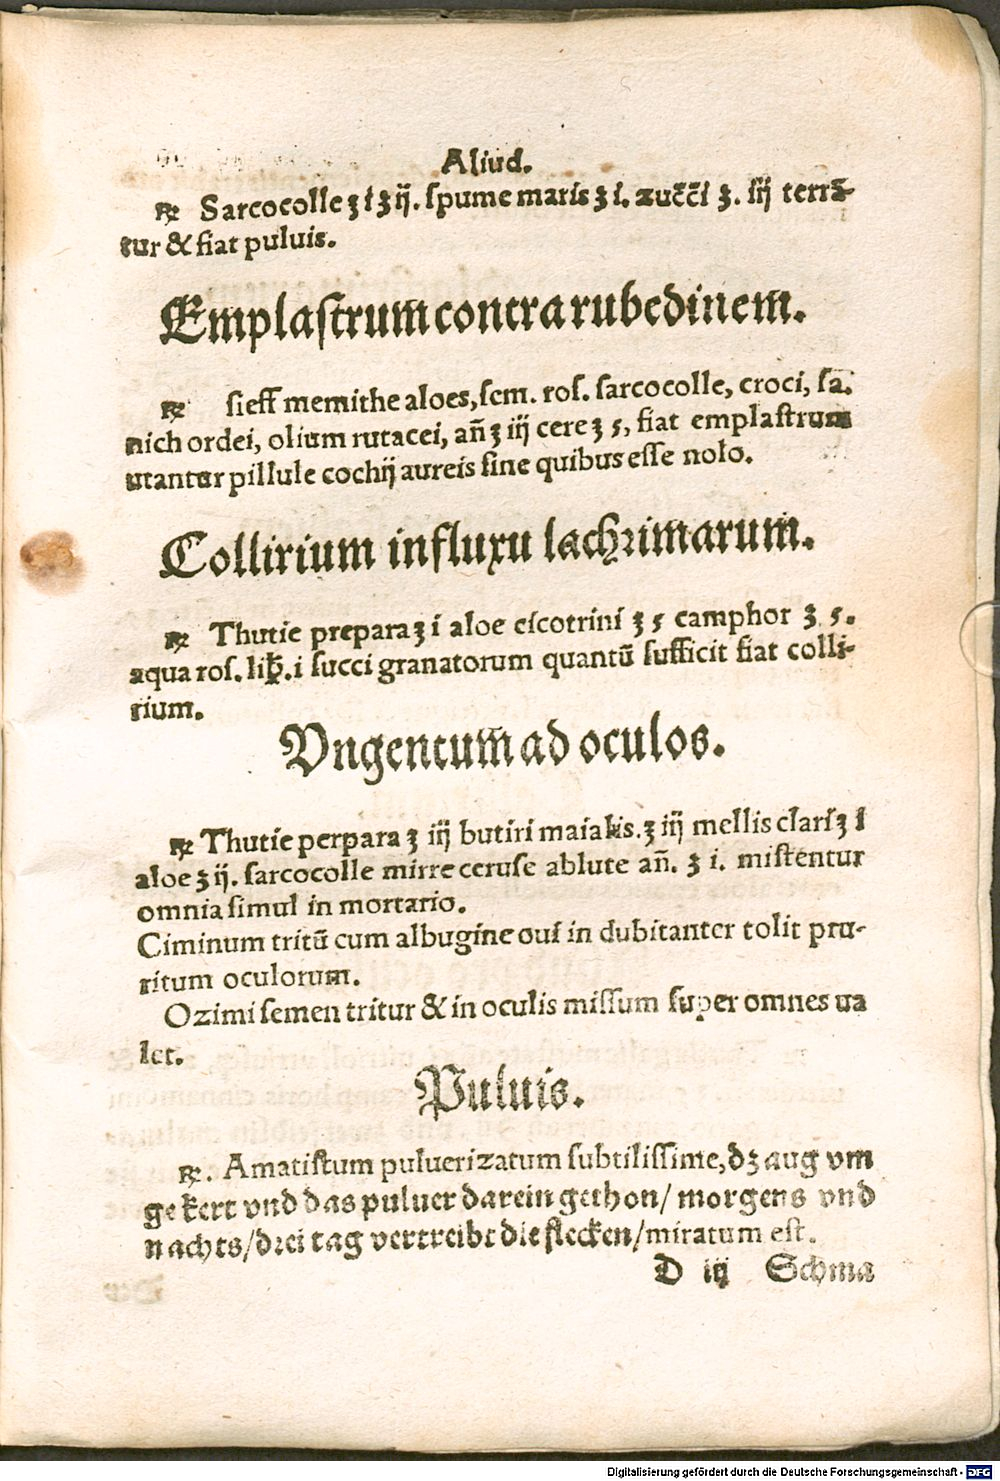 Aliud.
℞ Sarcocolle ʒ i ʒ ij. spume maris ʒ i. zuc̄c̄i ʒ. iij terrā-
tur & fiat puluis.
Emplastrum contra rubedinem.
℞ sieff memithe aloes, sem. ros. sarcocolle, croci, sa.
nich ordei, olium rutacei, añ ʒ iij cere ʒ 5, fiat emplastrum
utantur pillule cochij aureis sine quibus esse nolo.
Collirium influxu lachrimarum.
℞ Thutie prepara ʒ i aloe cicotrini ʒ 5 camphor ʒ 5.
aqua ros. lib. i succi granatorum quantū sufficit fiat colli-
rium.
Vngentum ad oculos.
℞ Thutie perpara ʒ iij butiri maialis. ʒ iij mellis clari ʒ i
aloe ʒ ij. sarcocolle mirre ceruse ablute añ. ʒ i. mistentur
omnia simul in mortario.
Ciminum tritū cum albugine oui in dubitanter tolit pru-
ritum oculorum.
Ozimi semen tritur & in oculis missum super omnes ua
let.
Puluis.
℞. Amatistum puluerizatum subtilissime, dz aug vm
gekert vnd das puluer darein gethon/ morgens vnd
nachts/drei tag vertreibt die flecken/miratum est.
D iij Schma
Digitalisierung gefördert durch die Deutsche Forschungsgemeinschaft - DFG